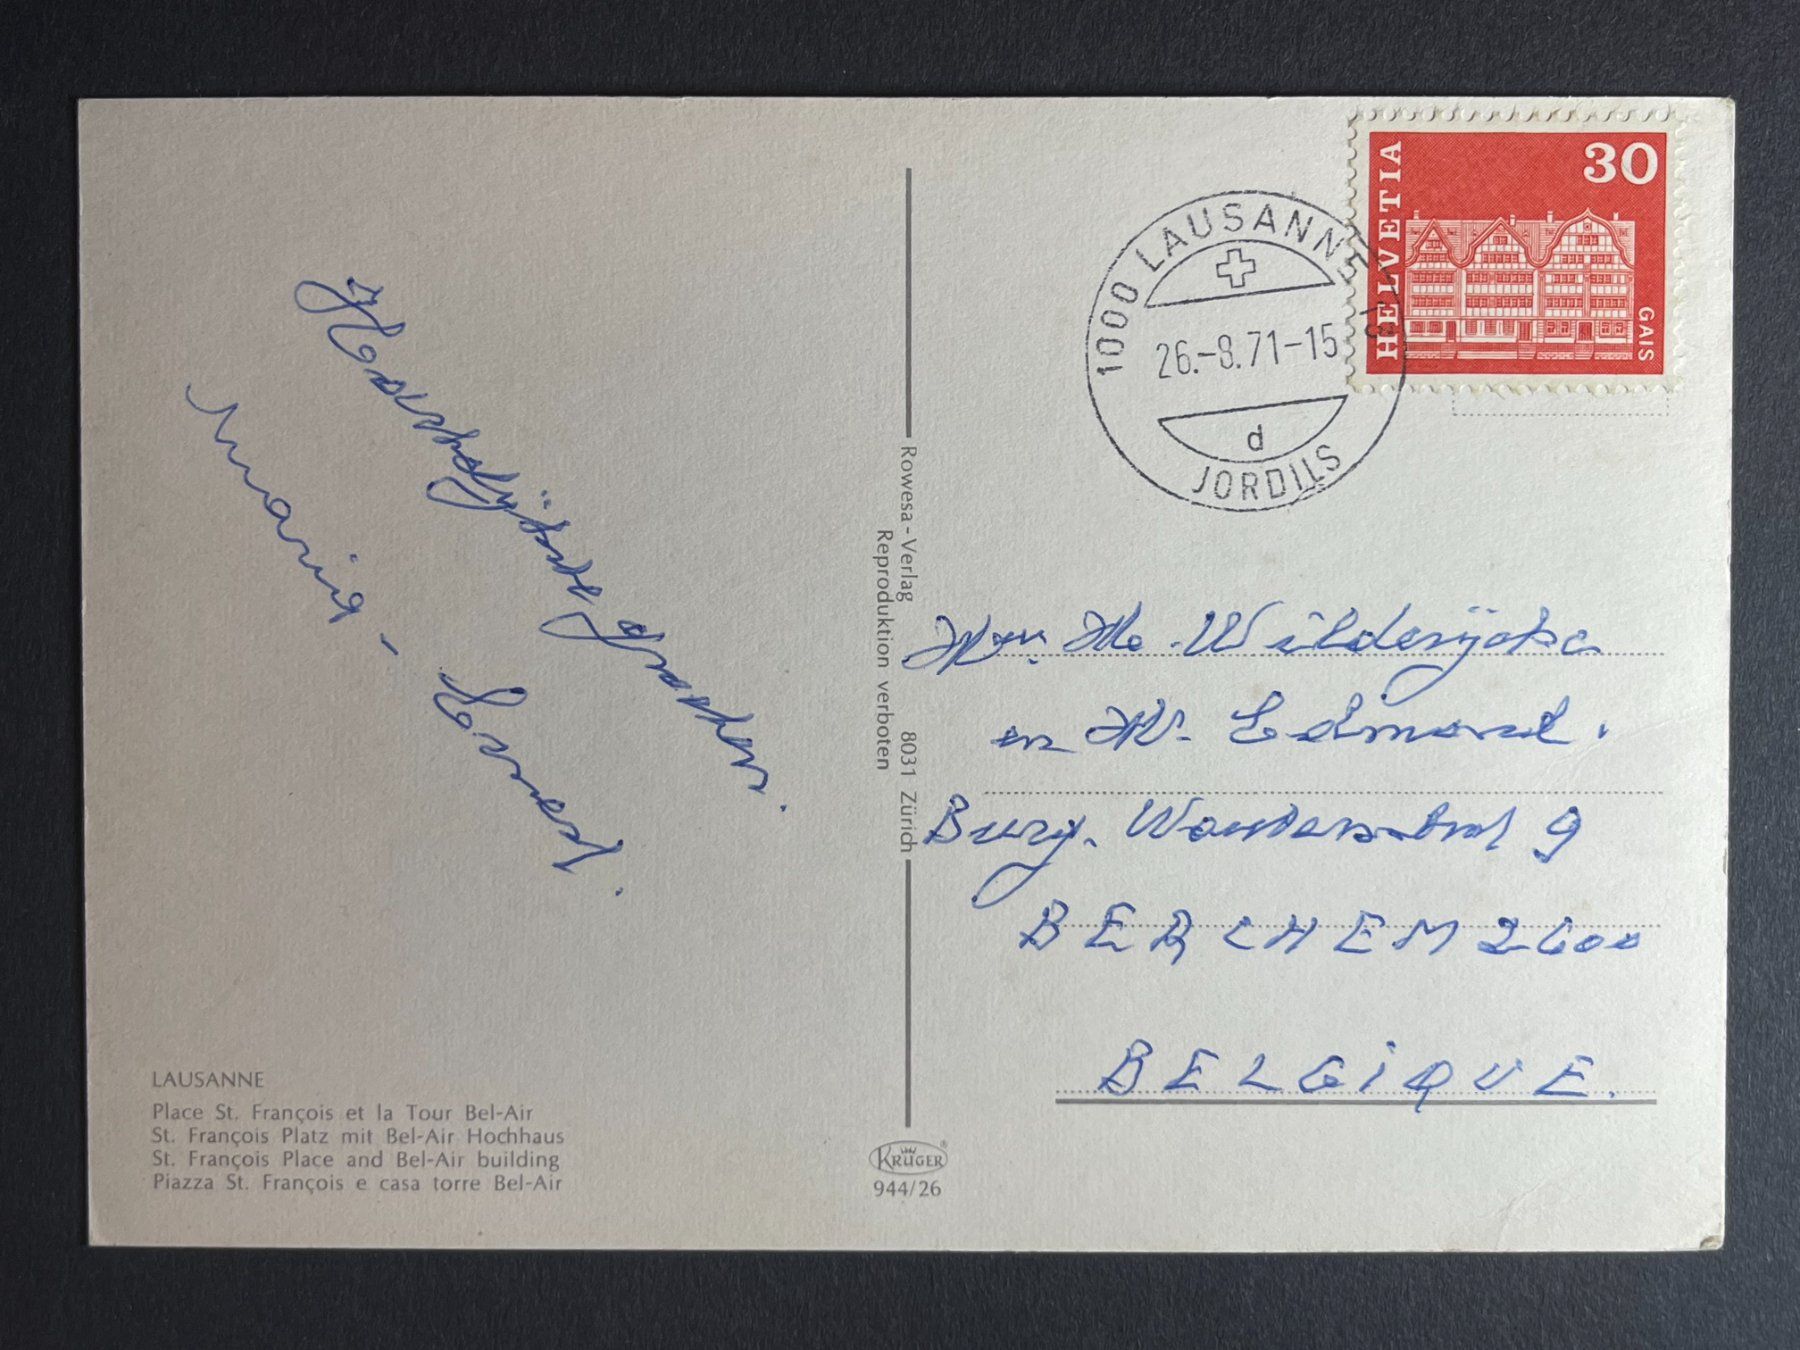 Maria -
HELVETIA
30
GAIS
1000 LAUSANNE
26.-8.71-15
d
JORDILS
Rowesa - Verlag 8031 Zürich
Reproduktion verboten
en Edmond.
Burg. 9
BERCHEM 2600
BELGIQUE.
LAUSANNE
Place St. François et la Tour Bel-Air
St. François Platz mit Bel-Air Hochhaus
St. François Place and Bel-Air building
Piazza St. François e casa torre Bel-Air
KRÜGER®
944/26